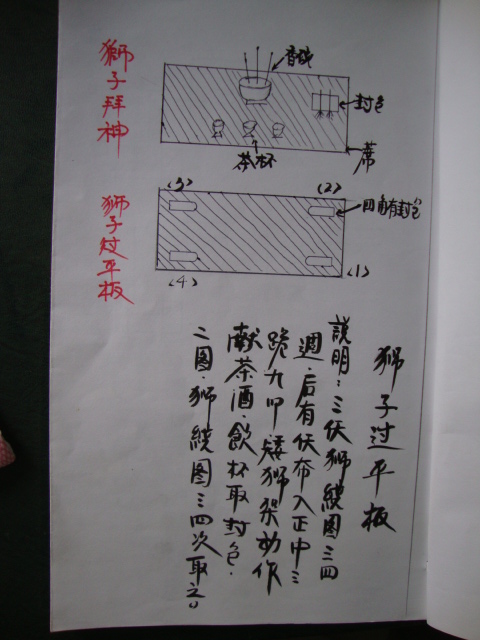 獅子拜神
封包
席
茶杯
狮子过平板
(3)
(2)
四角有封包
(4)
(1)
狮子过平板
説明:三伏狮繞图三四
週.后有伏布入正中三
跪九叩矮狮架动作
献茶酒.飲杯取封包.
二图.狮繞图三四次取之。